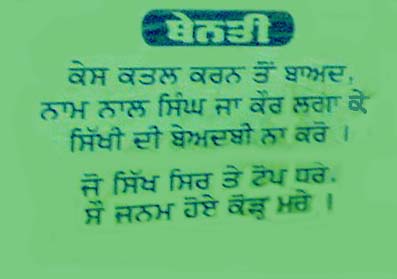 ਬੇਨਤੀ
ਕੇਸ ਕਤਲ ਕਰਨ ਤੋਂ ਬਾਅਦ,
ਨਾਮ ਨਾਲ ਸਿੰਘ ਜਾ ਕੌਰ ਲਗਾ ਕੇ
ਸਿੱਖੀ ਦੀ ਬੇਅਦਬੀ ਨਾ ਕਰੋ ।
ਜੋ ਸਿੱਖ ਸਿਰ ਤੇ ਟੋਪ ਧਰੇ,
ਸੌ ਜਨਮ ਹੋਏ ਕੋੜ੍ਹ ਮਰੇ ।